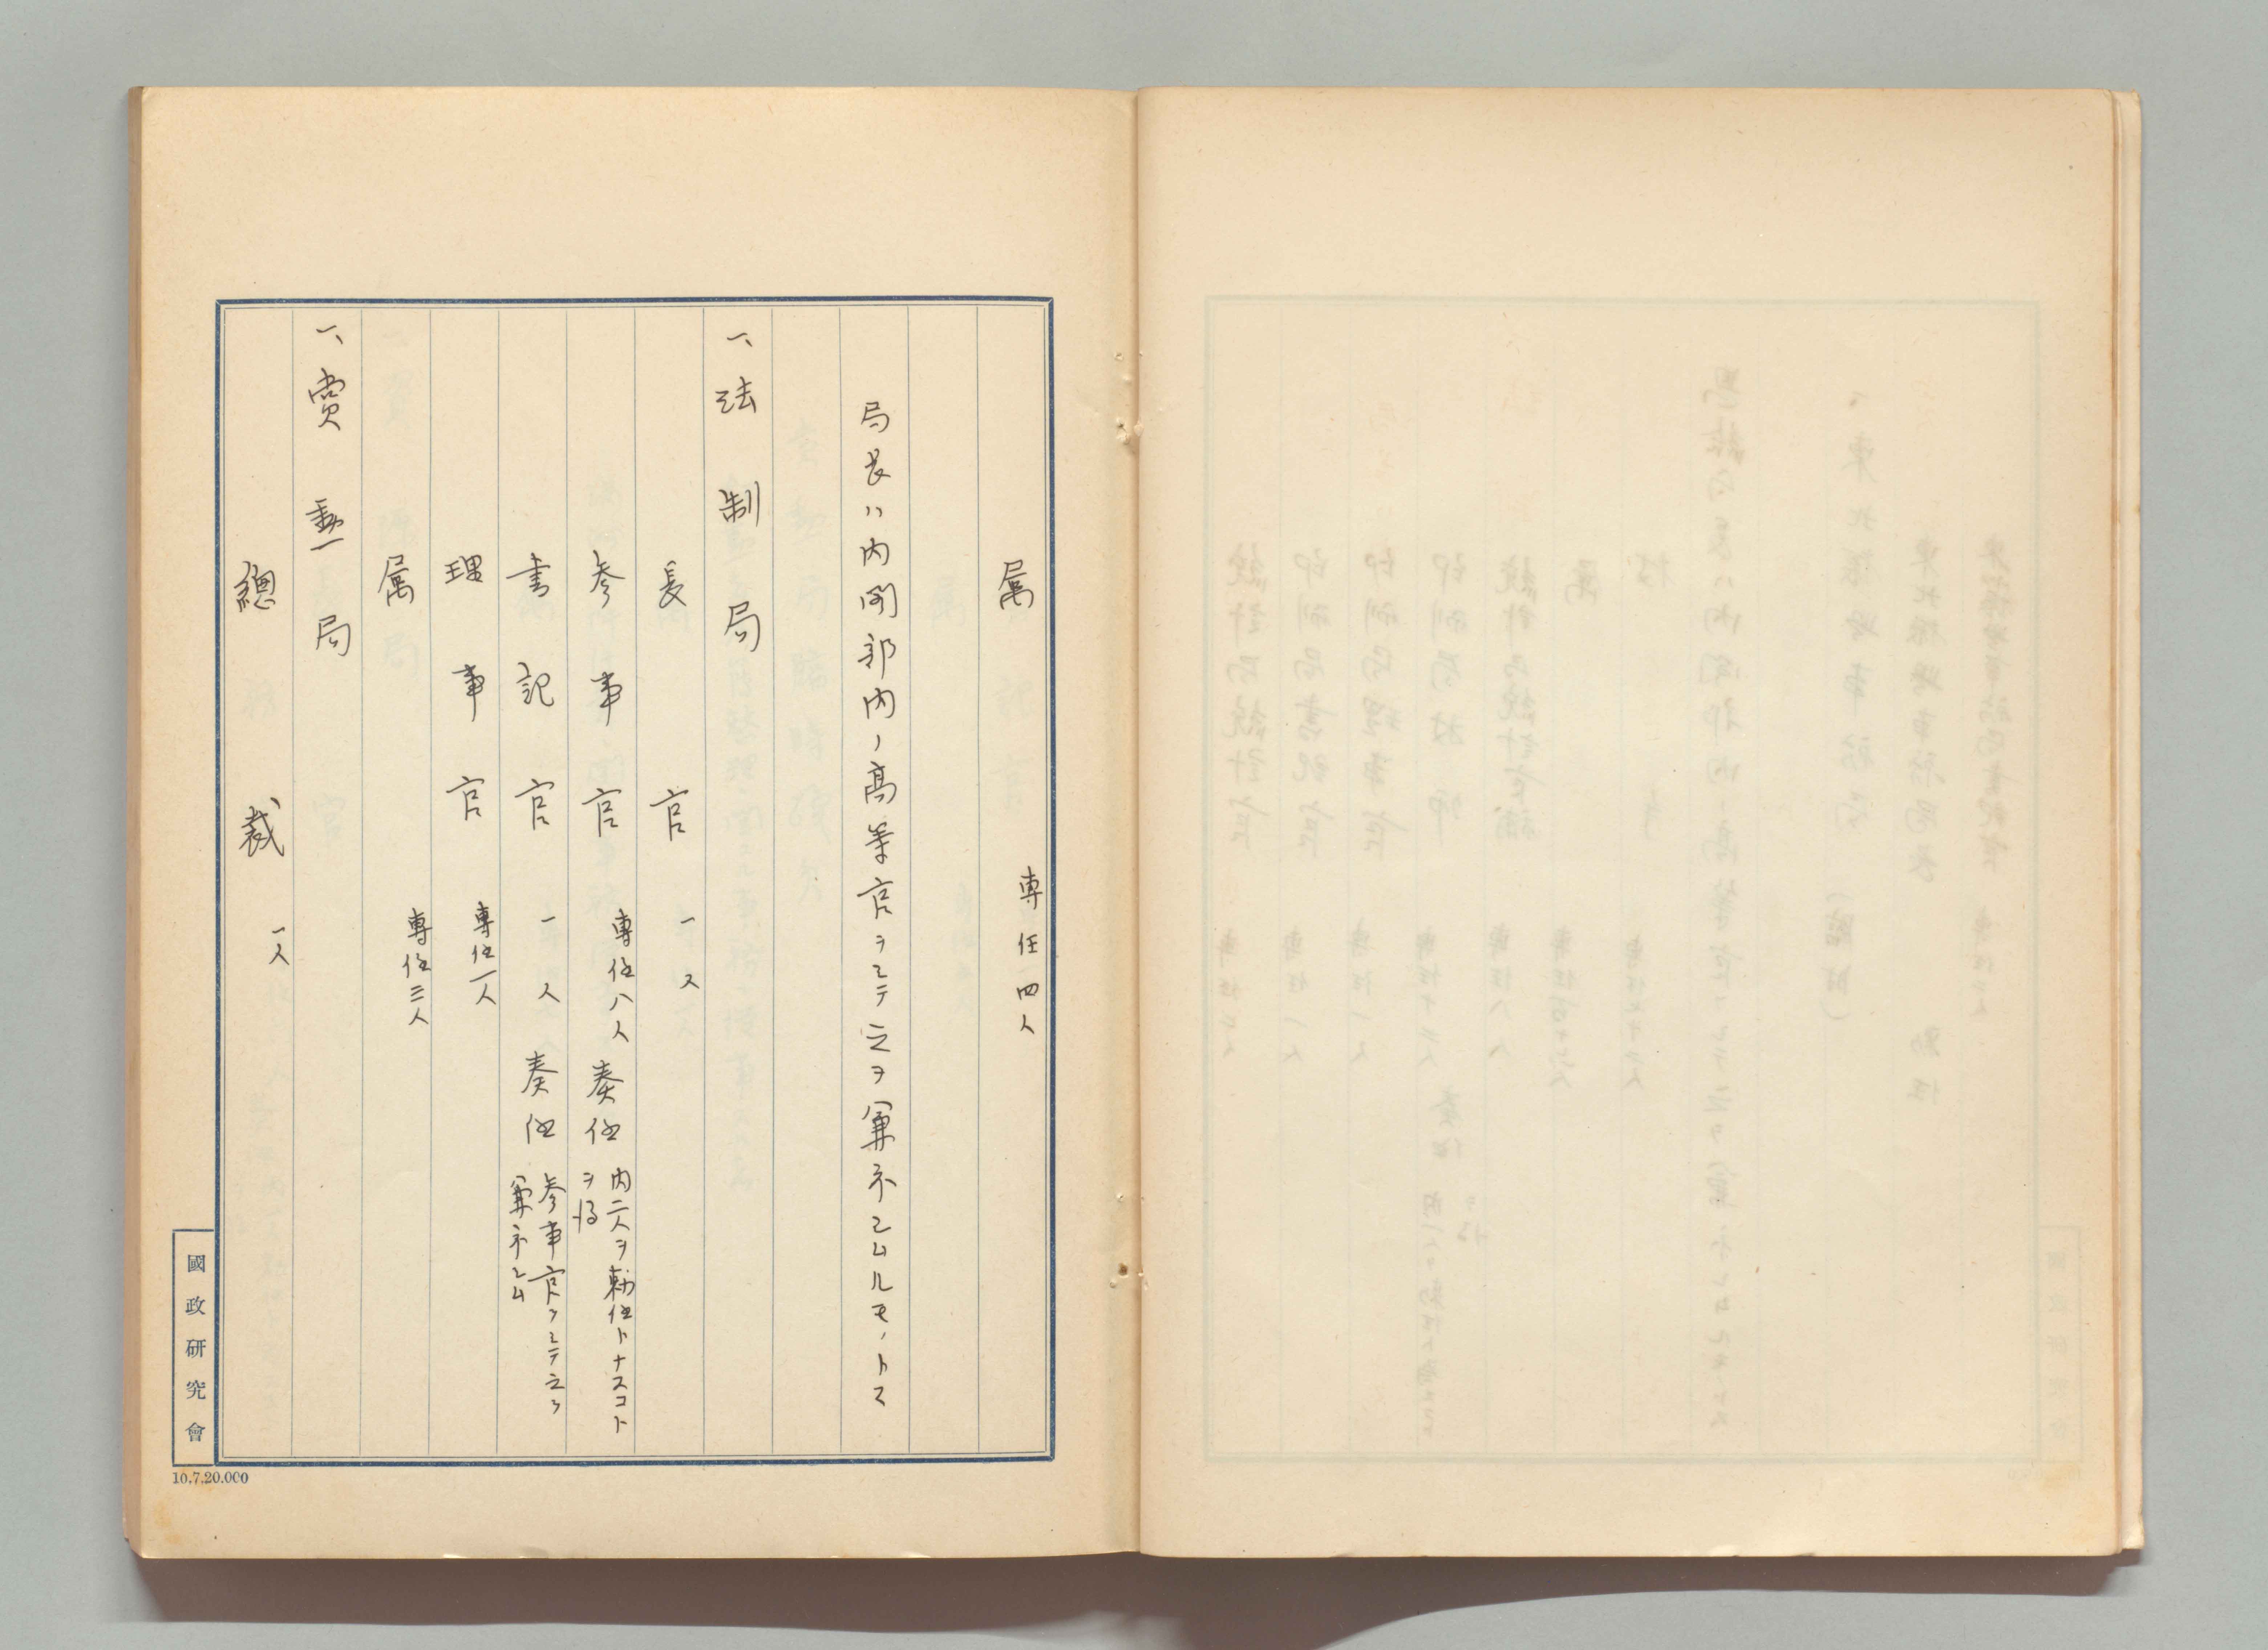 属 専任四人
局長ハ内閣部内ノ高等官ヲシテ之ヲ兼ネシムルモノトス
一、法制局
長官 一人
参事官 専任八人 奏任 内二人ヲ勅任トナスコトヲ得
書記官 一人 奏任 参事官ヲシテ之ヲ兼ネシム
理事官 専任一人
属 専任三人
一、賞勲局
總裁 一人
國政研究會
10.7.20.000